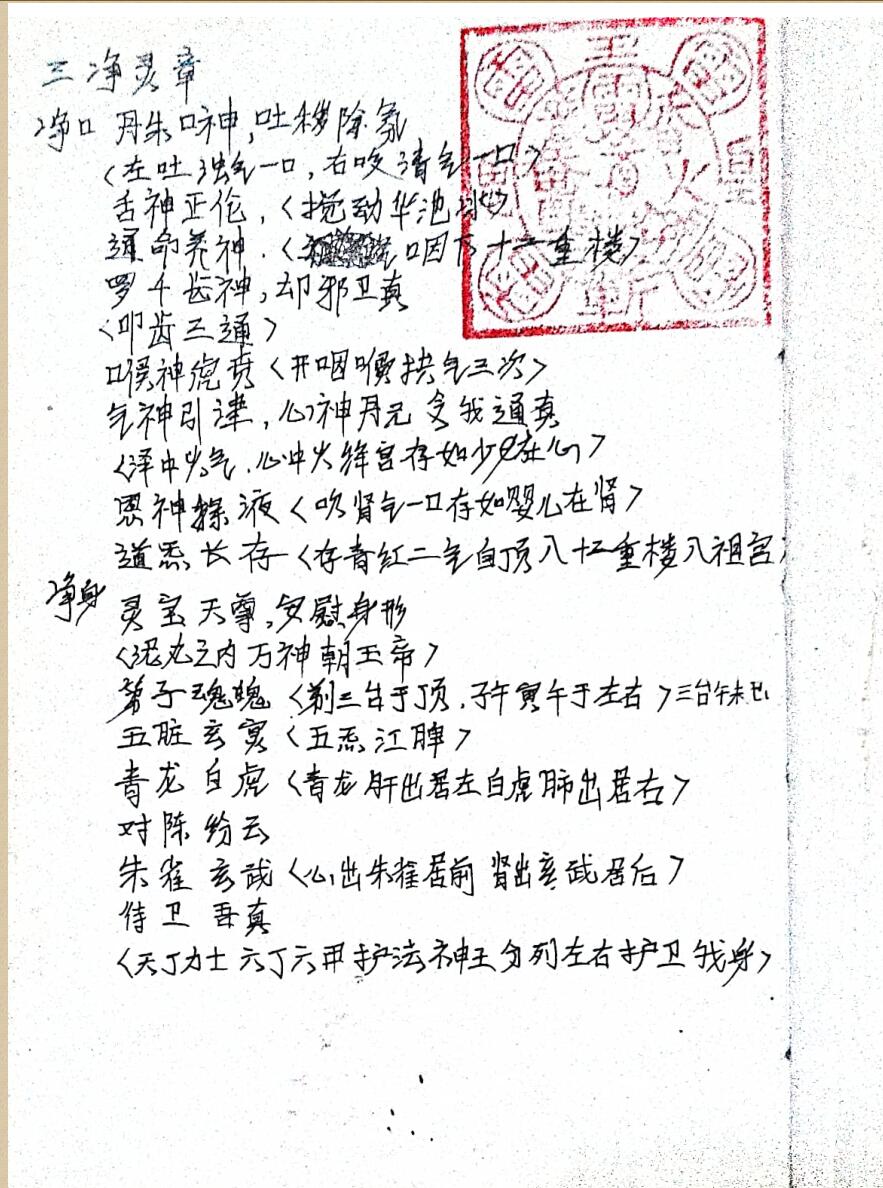 三净灵章
净口 丹朱口神,吐秽除氛
〈左吐浊气一口,右咬清气一口〉
舌神正伦,〈搅动华池水〉
通命养神.〈口咽下十二重楼〉
罗千齿神,却邪卫真
〈叩齿三通〉
喉神虎贲〈开咽喉拱气三次〉
气神引津,心神丹元 令我通真
〈泽中火气.心冲火绛宫存如少女在心〉
思神操液〈吹肾气一口存如婴儿在肾〉
道炁长存〈存青红二气自顶入十二重楼入祖宫〉
净身 灵宝天尊,安慰身形
〈泥丸之内万神朝玉帝〉
弟子魂魄〈剃三台于顶.子午寅午于左右〉三台午未巳
五脏玄冥〈五炁江脾〉
青龙白虎〈青龙肝出居左白虎肺出居右〉
对陈纷云
朱雀玄武〈心出朱雀居前 肾出玄武居后〉
侍卫吾真
〈天丁力士六丁六甲护法神王分列左右护卫我身〉